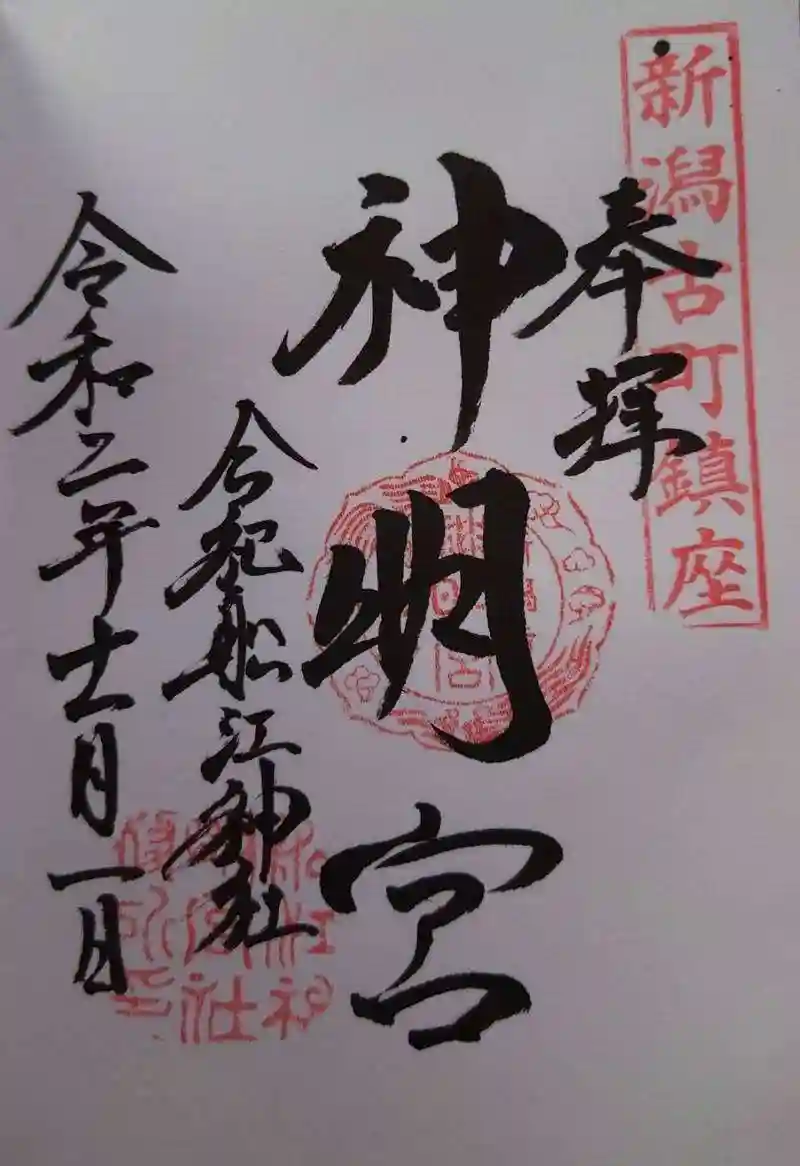 新潟古町鎮座
奉輝
神明宮
合祀船江神社
令和二年十一月一日